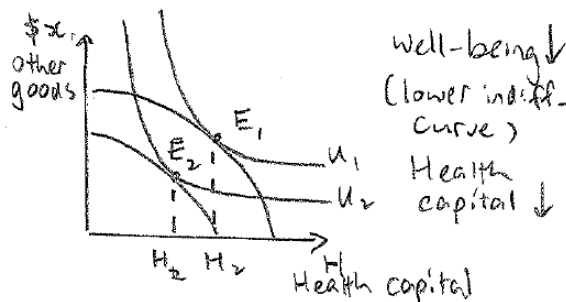 $x,
other
goods
E₁
E₂
U₁
U₂
H₂ H₂
H
Health capital
well-being↓
(lower indiff-
curve)
Health
capital ↓